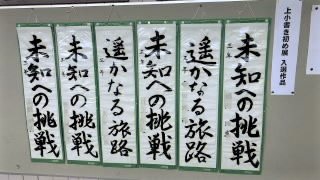 上小書き初め展 入選作品
未知への挑戦
遥かなる旅路
未知への挑戦
遥かなる旅路
未知への挑戦
未知への挑戦